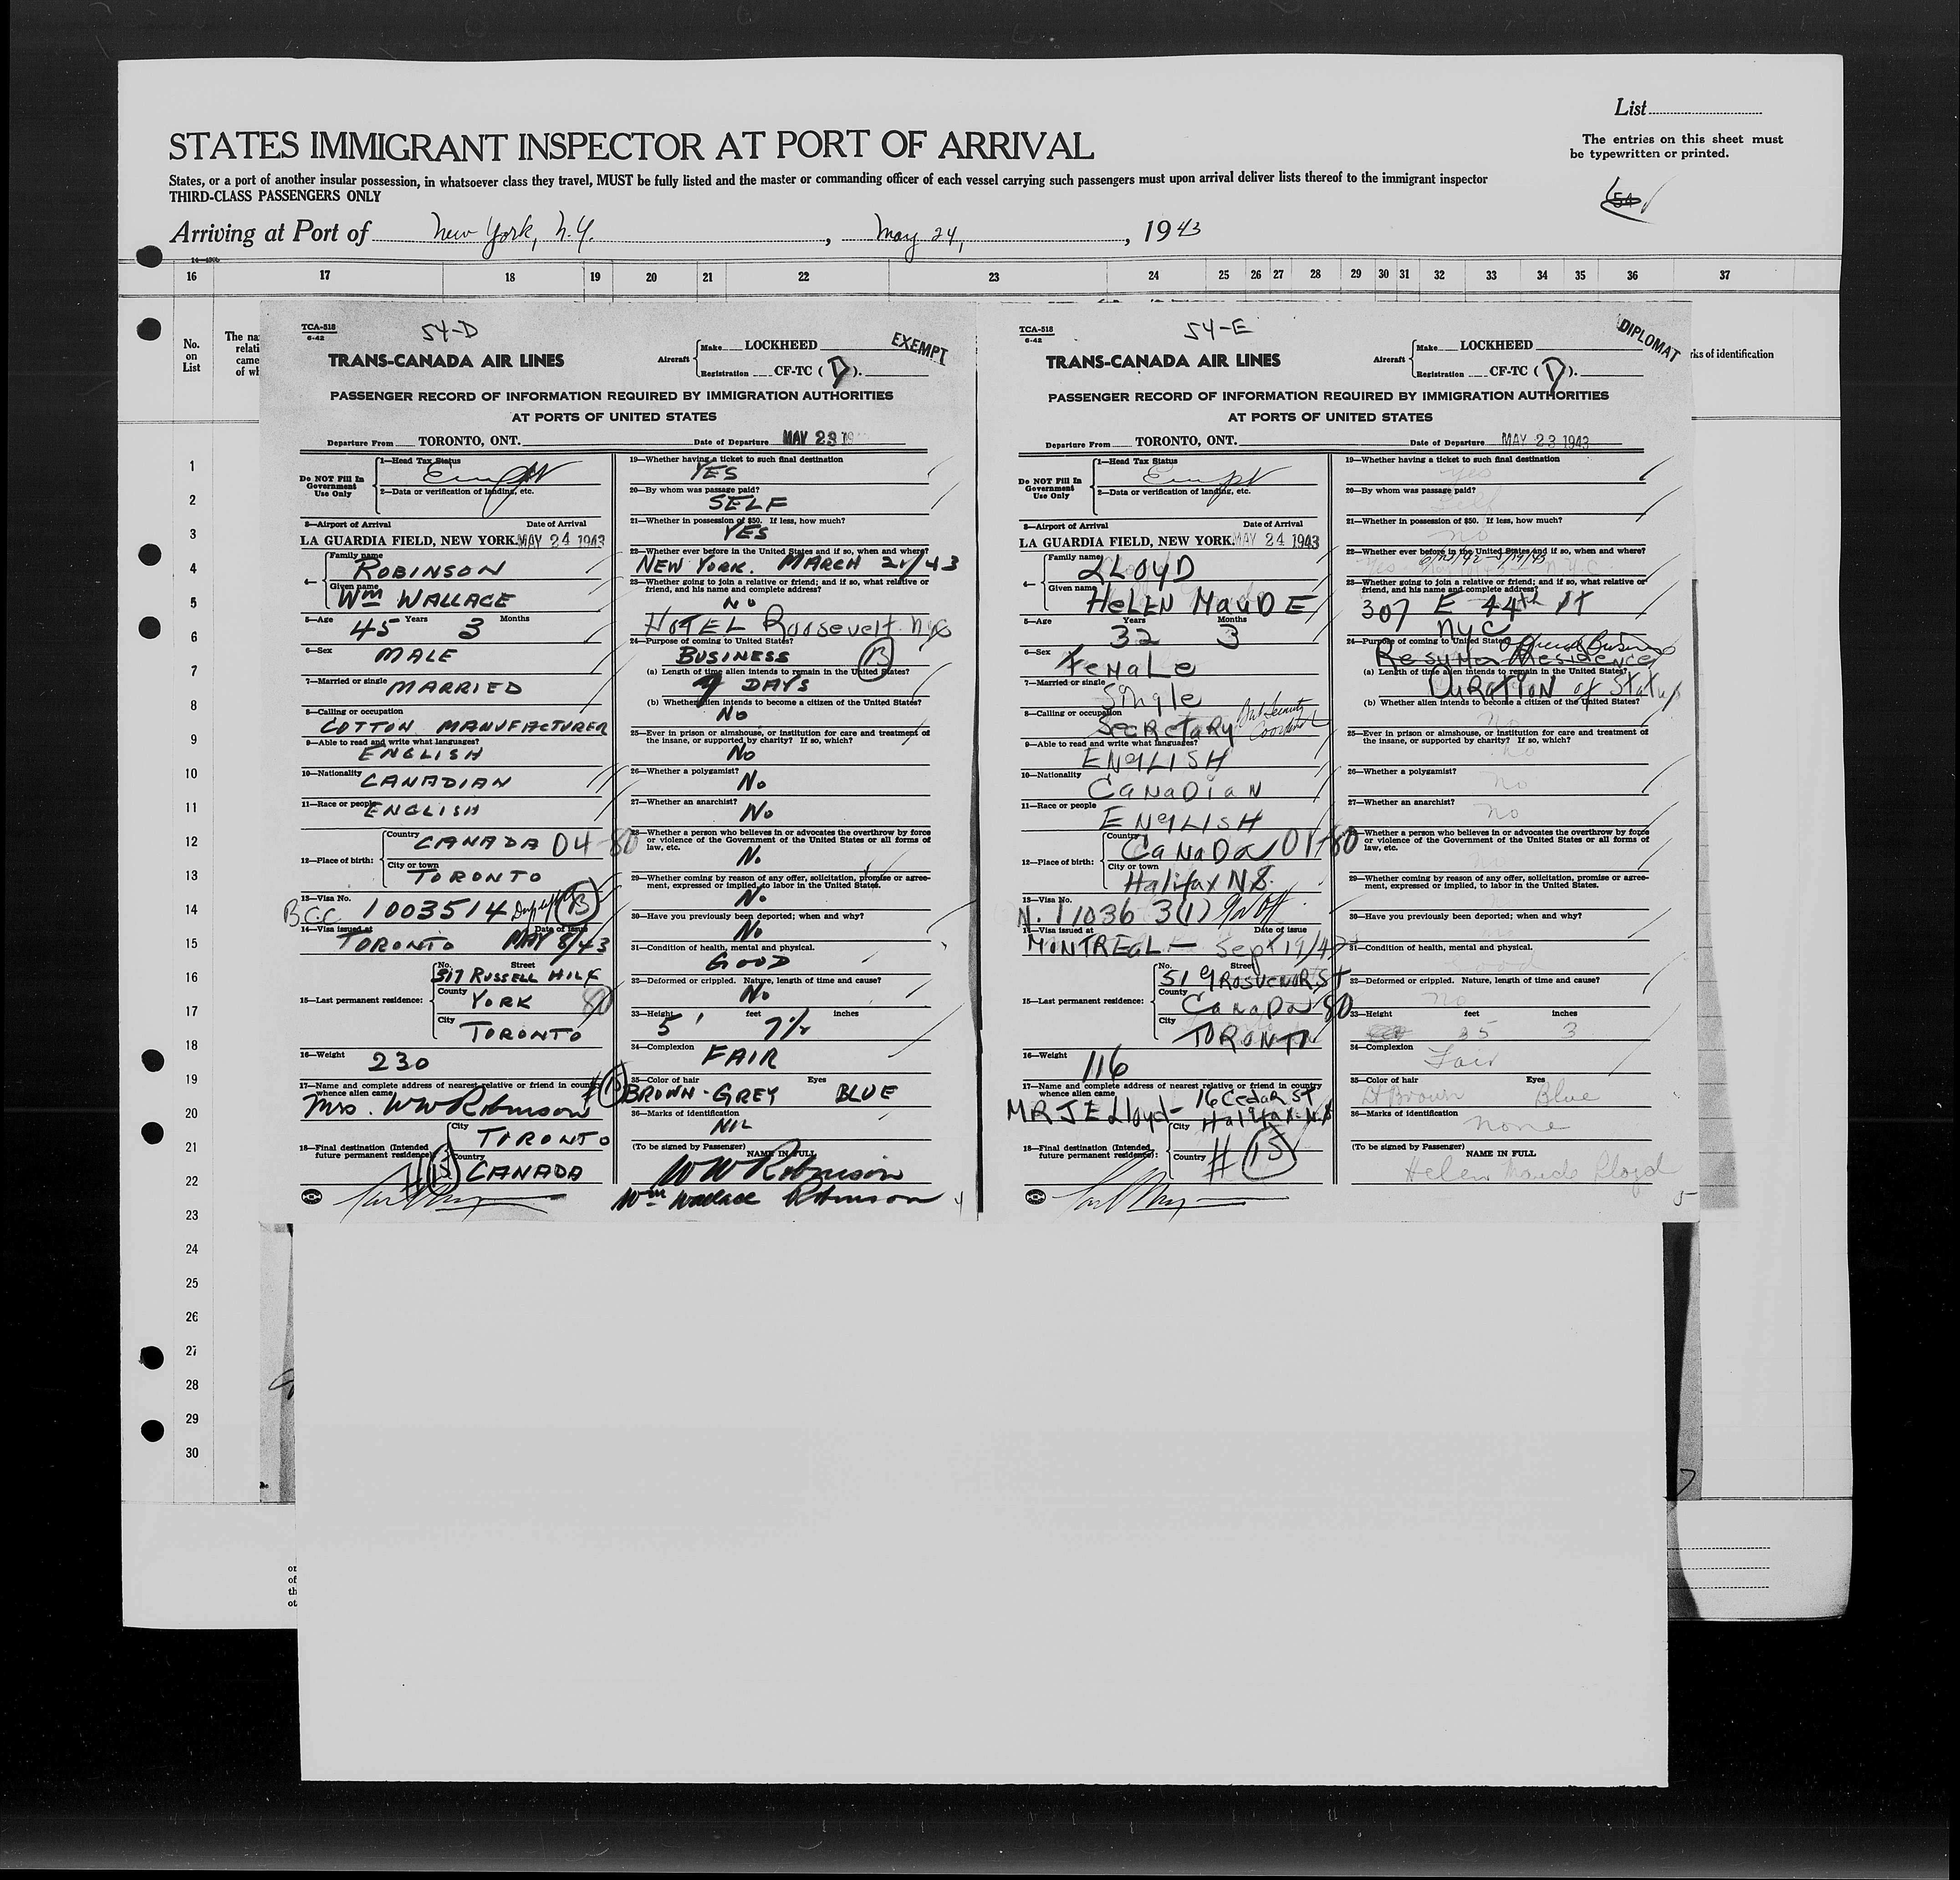 List
STATES IMMIGRANT INSPECTOR AT PORT OF ARRIVAL
The entries on this sheet must
be typewritten or printed.
States, or a port of another insular possession, in whatsoever class they travel, MUST be fully listed and the master or commanding officer of each vessel carrying such passengers must upon arrival deliver lists thereof to the immigrant inspector
THIRD-CLASS PASSENGERS ONLY
54
Arriving at Port of New York, N.Y., May 24, 1943
16 17 18 19 20 21 22 23 24 25 26 27 28 29 30 31 32 33 34 35 36 37
No.
on
List
The na
relati
came
of wh
rks of identification
1
2
3
4
5
6
7
8
9
10
11
12
13
14
15
16
17
18
19
20
21
22
23
24
25
26
27
28
29
30
TCA-518
6-42
54-D
EXEMPT
TRANS-CANADA AIR LINES
Aircraft
Make LOCKHEED
Registration CF-TC (D).
PASSENGER RECORD OF INFORMATION REQUIRED BY IMMIGRATION AUTHORITIES
AT PORTS OF UNITED STATES
Departure From TORONTO, ONT. Date of Departure MAY 23 19
Do NOT Fill In
Government
Use Only
1—Head Tax Status
2—Data or verification of landing, etc.
3—Airport of Arrival Date of Arrival
LA GUARDIA FIELD, NEW YORK. MAY 24 1943
4—
Family name
ROBINSON
Given name
Wm WALLACE
5—Age 45 Years 3 Months
6—Sex
MALE
7—Married or single MARRIED
8—Calling or occupation
COTTON MANUFACTURER
9—Able to read and write what languages?
ENGLISH
10—Nationality
CANADIAN
11—Race or people
ENGLISH
12—Place of birth:
Country
CANADA 04-80
City or town
TORONTO
13—Visa No.
B.C.C 1003514 B
14—Visa issued at Date of issue
TORONTO MAY 8/43
15—Last permanent residence:
No. Street
517 RUSSELL HILL
County
YORK 80
City
TORONTO
16—Weight 230
17—Name and complete address of nearest relative or friend in country
whence alien came
Mrs. WW Robinson
18—Final destination (Intended
future permanent residence):
City
TORONTO
Country
CANADA
19—Whether having a ticket to such final destination
YES
20—By whom was passage paid?
SELF
21—Whether in possession of $50. If less, how much?
YES
22—Whether ever before in the United States and if so, when and where?
NEW YORK. MARCH 21/43
23—Whether going to join a relative or friend; and if so, what relative or
friend, and his name and complete address?
NO
HOTEL Roosevelt NYC
24—Purpose of coming to United States?
BUSINESS B
(a) Length of time alien intends to remain in the United States?
DAYS
(b) Whether alien intends to become a citizen of the United States?
NO
25—Ever in prison or almshouse, or institution for care and treatment of
the insane, or supported by charity? If so, which?
NO
26—Whether a polygamist?
No
27—Whether an anarchist?
No
28—Whether a person who believes in or advocates the overthrow by force
or violence of the Government of the United States or all forms of
law, etc.
No
29—Whether coming by reason of any offer, solicitation, promise or agree-
ment, expressed or implied, to labor in the United States.
No
30—Have you previously been deported; when and why?
No
31—Condition of health, mental and physical.
GOOD
32—Deformed or crippled. Nature, length of time and cause?
No
33—Height 5' feet 7½ inches
34—Complexion FAIR
35—Color of hair Eyes
BROWN-GREY BLUE
36—Marks of identification
NIL
(To be signed by Passenger) NAME IN FULL
WW Robinson
Wm Wallace Robinson 4
TCA-518
6-42
54-E
DIPLOMAT
TRANS-CANADA AIR LINES
Aircraft
Make LOCKHEED
Registration CF-TC (D).
PASSENGER RECORD OF INFORMATION REQUIRED BY IMMIGRATION AUTHORITIES
AT PORTS OF UNITED STATES
Departure From TORONTO, ONT. Date of Departure MAY 23 1943
Do NOT Fill In
Government
Use Only
1—Head Tax Status
2—Data or verification of landing, etc.
3—Airport of Arrival Date of Arrival
LA GUARDIA FIELD, NEW YORK. MAY 24 1943
4—
Family name
LLOYD
Given name
HELEN MAUDE
5—Age 32 Years 3 Months
6—Sex
Female
7—Married or single
Single
8—Calling or occupation
Secretary
9—Able to read and write what languages?
ENGLISH
10—Nationality
CANADIAN
11—Race or people
ENGLISH
12—Place of birth:
Country
CANADA 01-80
City or town
Halifax N.S.
13—Visa No.
N. 11036 3(1)
14—Visa issued at Date of issue
MONTREAL — Sept 19/42
15—Last permanent residence:
No. Street
51 GROSVENOR St
County
Canada 80
City
TORONTO
16—Weight 116
17—Name and complete address of nearest relative or friend in country
whence alien came
MR J E Lloyd - 16 Cedar ST
Halifax. N.S
18—Final destination (Intended
future permanent residence):
City
Country
19—Whether having a ticket to such final destination
Yes
20—By whom was passage paid?
Self
21—Whether in possession of $50. If less, how much?
no
22—Whether ever before in the United States and if so, when and where?
Yes N.Y.C.
23—Whether going to join a relative or friend; and if so, what relative or
friend, and his name and complete address?
307 E 44th St
NYC
24—Purpose of coming to United States?
Official Business
Resume Residence
(a) Length of time alien intends to remain in the United States?
Duration of Status
(b) Whether alien intends to become a citizen of the United States?
No
25—Ever in prison or almshouse, or institution for care and treatment of
the insane, or supported by charity? If so, which?
no
26—Whether a polygamist?
no
27—Whether an anarchist?
no
28—Whether a person who believes in or advocates the overthrow by force
or violence of the Government of the United States or all forms of
law, etc.
no
29—Whether coming by reason of any offer, solicitation, promise or agree-
ment, expressed or implied, to labor in the United States.
30—Have you previously been deported; when and why?
no
31—Condition of health, mental and physical.
Good
32—Deformed or crippled. Nature, length of time and cause?
no
33—Height feet 5 inches 3
34—Complexion
Fair
35—Color of hair Eyes
Lt Brown Blue
36—Marks of identification
none
(To be signed by Passenger)
NAME IN FULL
Helen Maude Lloyd
5
or
of
th
ot